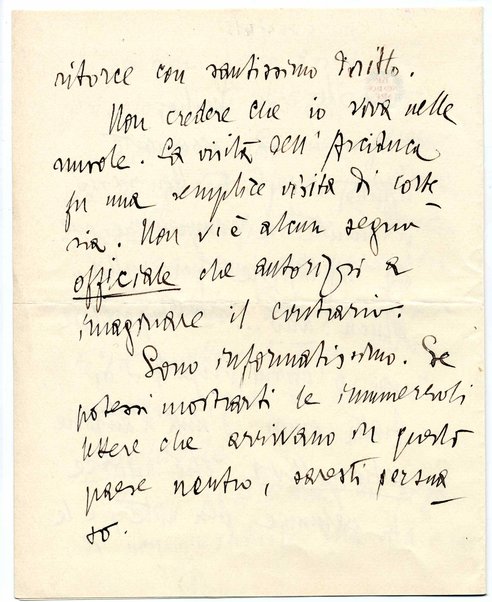 ritorce con santissimo diritto.
Non credere che io viva nelle
nuvole. La visita dell'Arciduca
fu una semplice visita di corte-
sia. Non vi è alcun segno
officiale che autorizzi a
imaginare il contrario.
Sono informatissimo. Se
potessi mostrarti le innumerevoli
lettere che arrivano in questo
paese neutro, saresti persua
so.